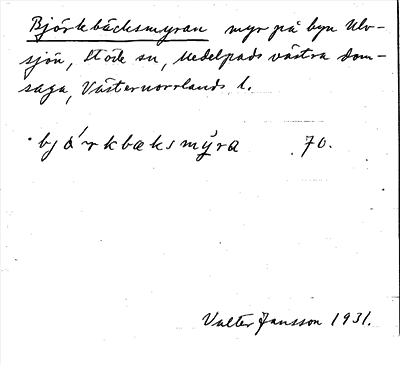 Björkbäcksmyran myr på byn Ulv-
sjön, Stöde sn, Medelpads västra dom-
saga, Västernorrlands l.
bjárkbæksmyra 70.
Valter Jansson 1931.